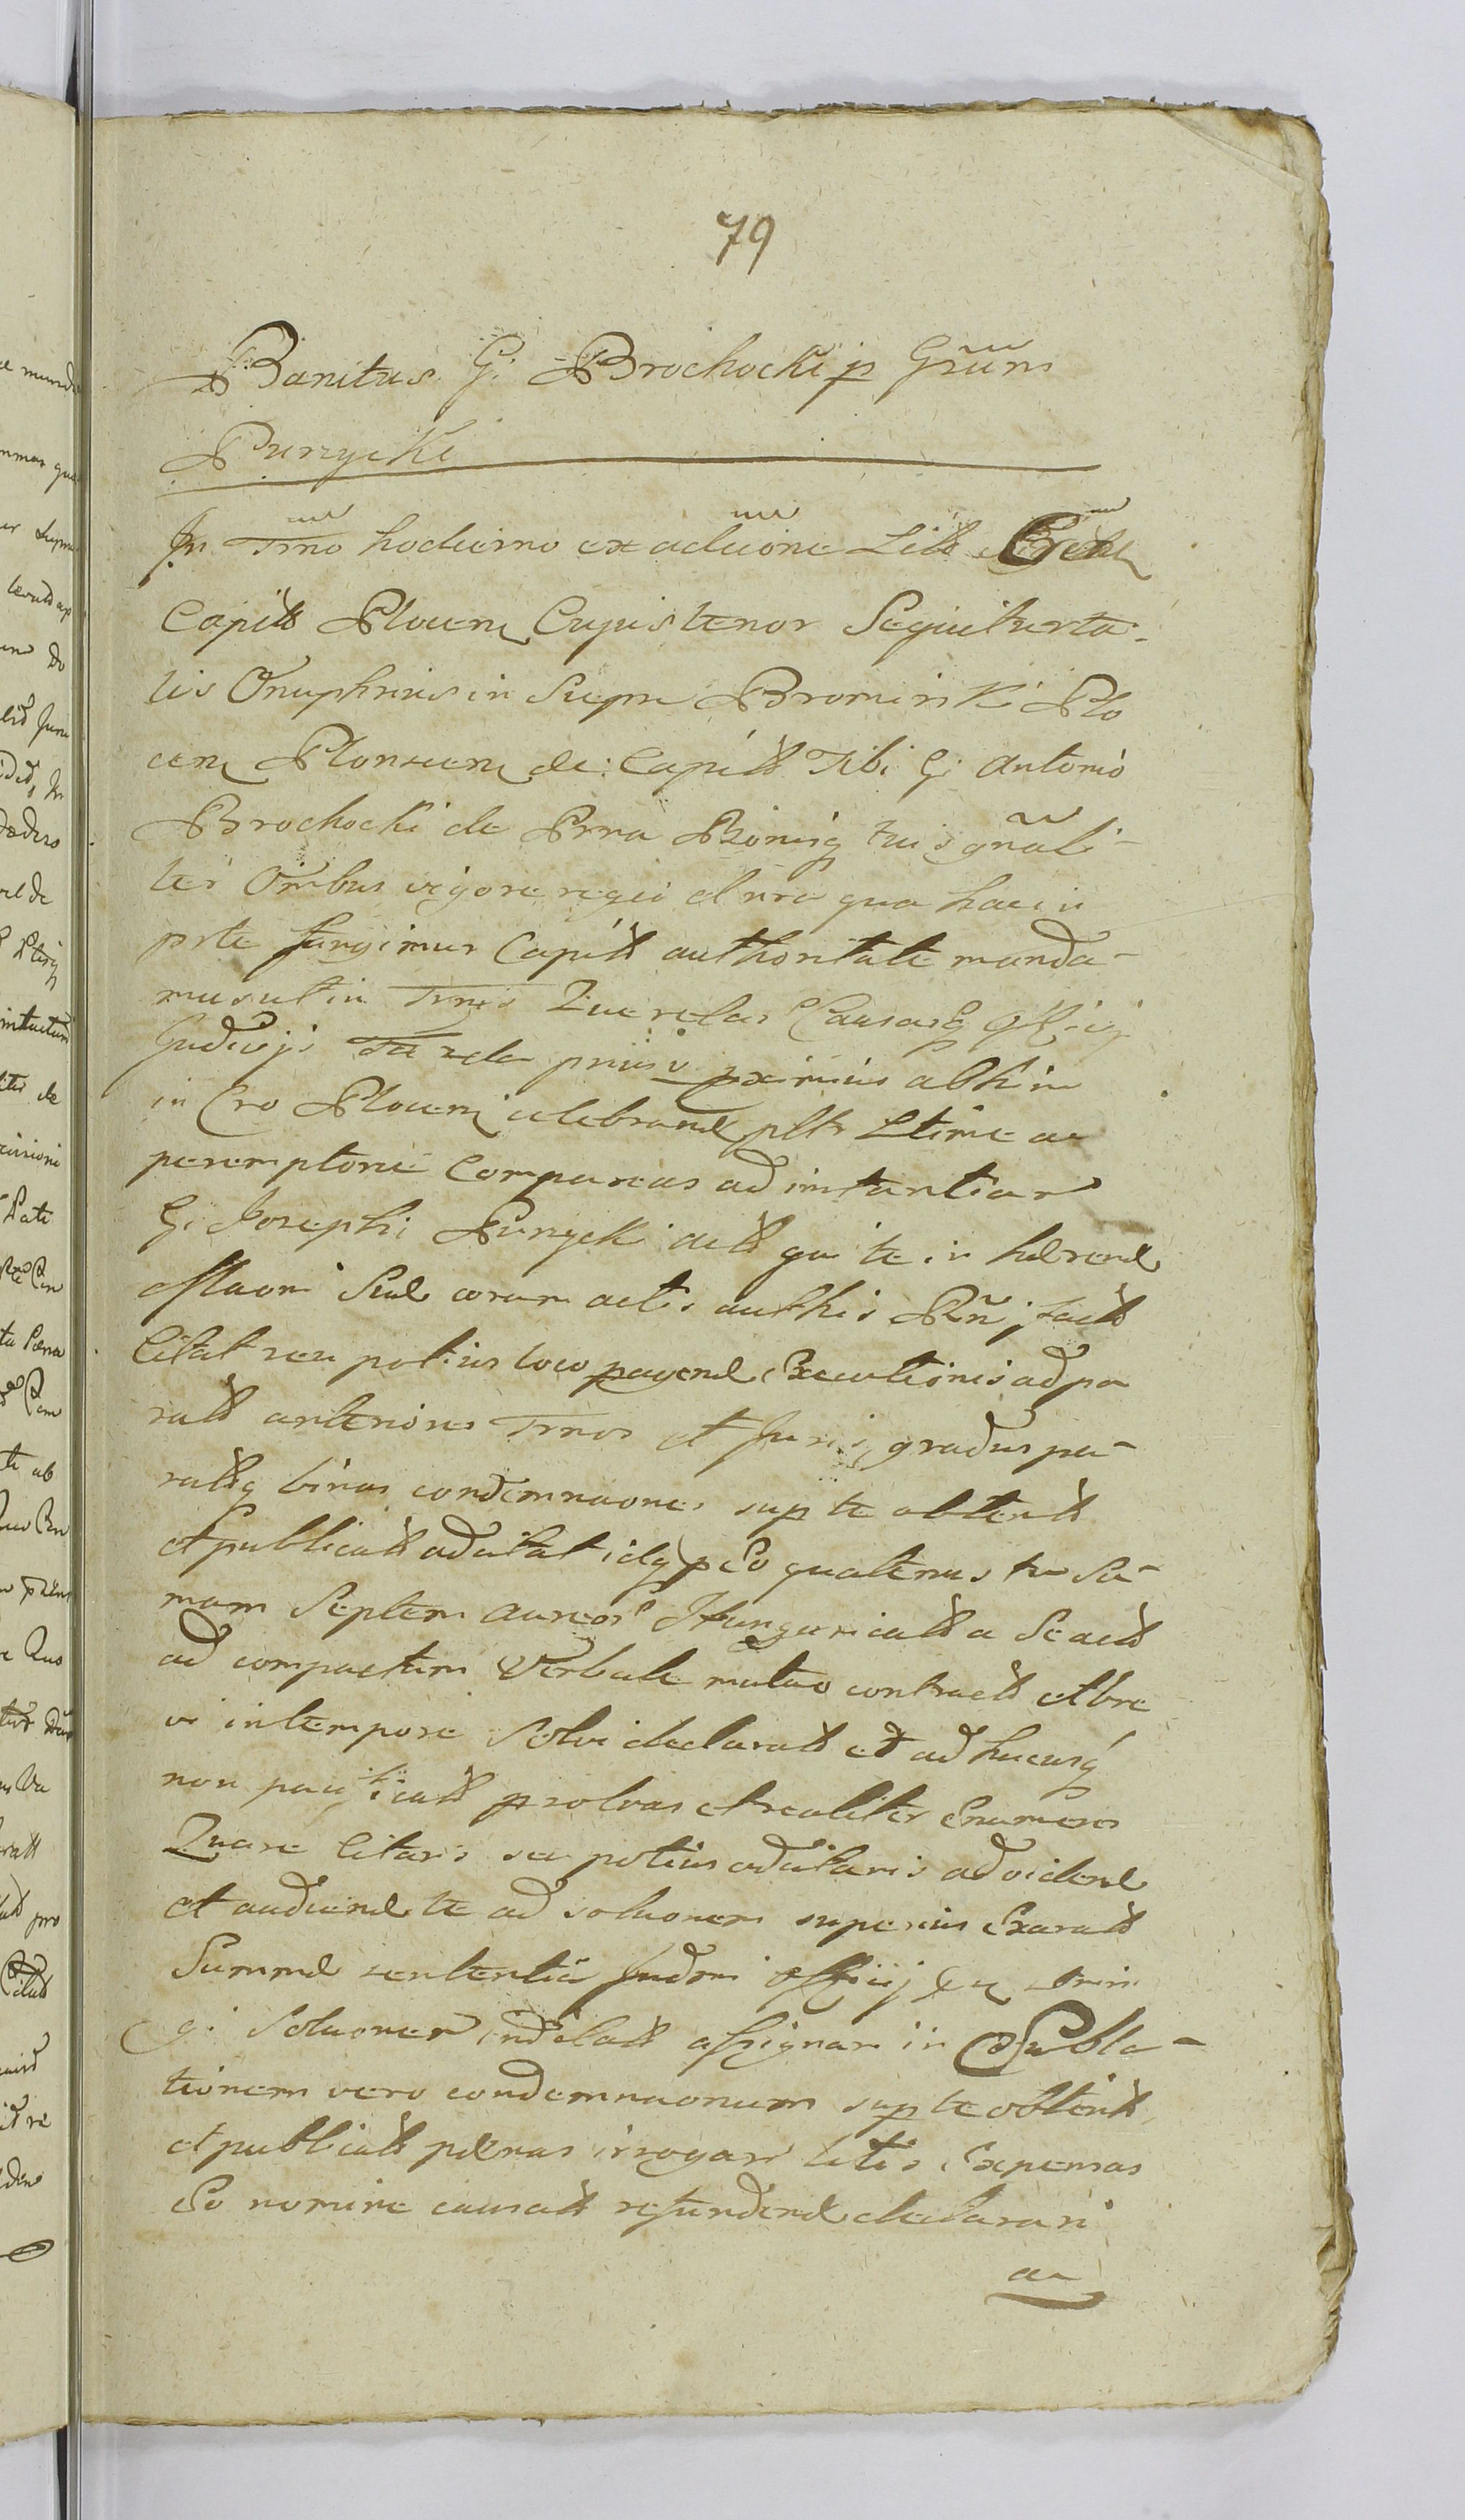 79
Banitus G: Brochocki p Gsum
Purzycki
In Tmno hodierno ex adcitõne Litt
Capitt Plocen Cujus tenor Sequitur ta-
lis Onuphrius in Siepn Bromirski Plo
cen Plonscen de: Capitt Tibi G: Antonio
Brochocki de Prna Bonisq tuis gñali-
ter Omibus vigore regio et nra qua hac in
prte fungimur Capitt authoritate manda-
mus ut in Tmis Querelar Causarq Officij
Judicijs prius v pximius abhinc
in Cro Plocen celebrand pltr Ltime ac
peremptorie Compareas ad instantiam
G: Josephi Purzycki actt qui te in hærend
Mãoni Suæ coram actis authis Pñ, factt
Citat seu potius loco pagend Executionis ad pa
ratt anteriores Tmos et Juris gradus pa-
rattq binas condemnaones sup te obtentt
et publicatt adcitat idq p Eo quatenus tu Su-
mam Septem Aureor Hungaricatt a Se actt
ad compactum Verbale mutuo contractt et bre
vi in tempore solvi declaratt et ad hucusq
non pacificatt psolvas et realiter Enumeres
Quare Citaris seu potius adcitaris ad vidend
et audiend te ad soluonem superius Exaratt
Summæ sententiã Judm officij
gi Soluonem indilatt assignari in Subla-
tionem vero condemnaonum sup te obtentt
et publicatt pænas irrogari litis Expensas
Eo nomine causatt refundend declarari
ac